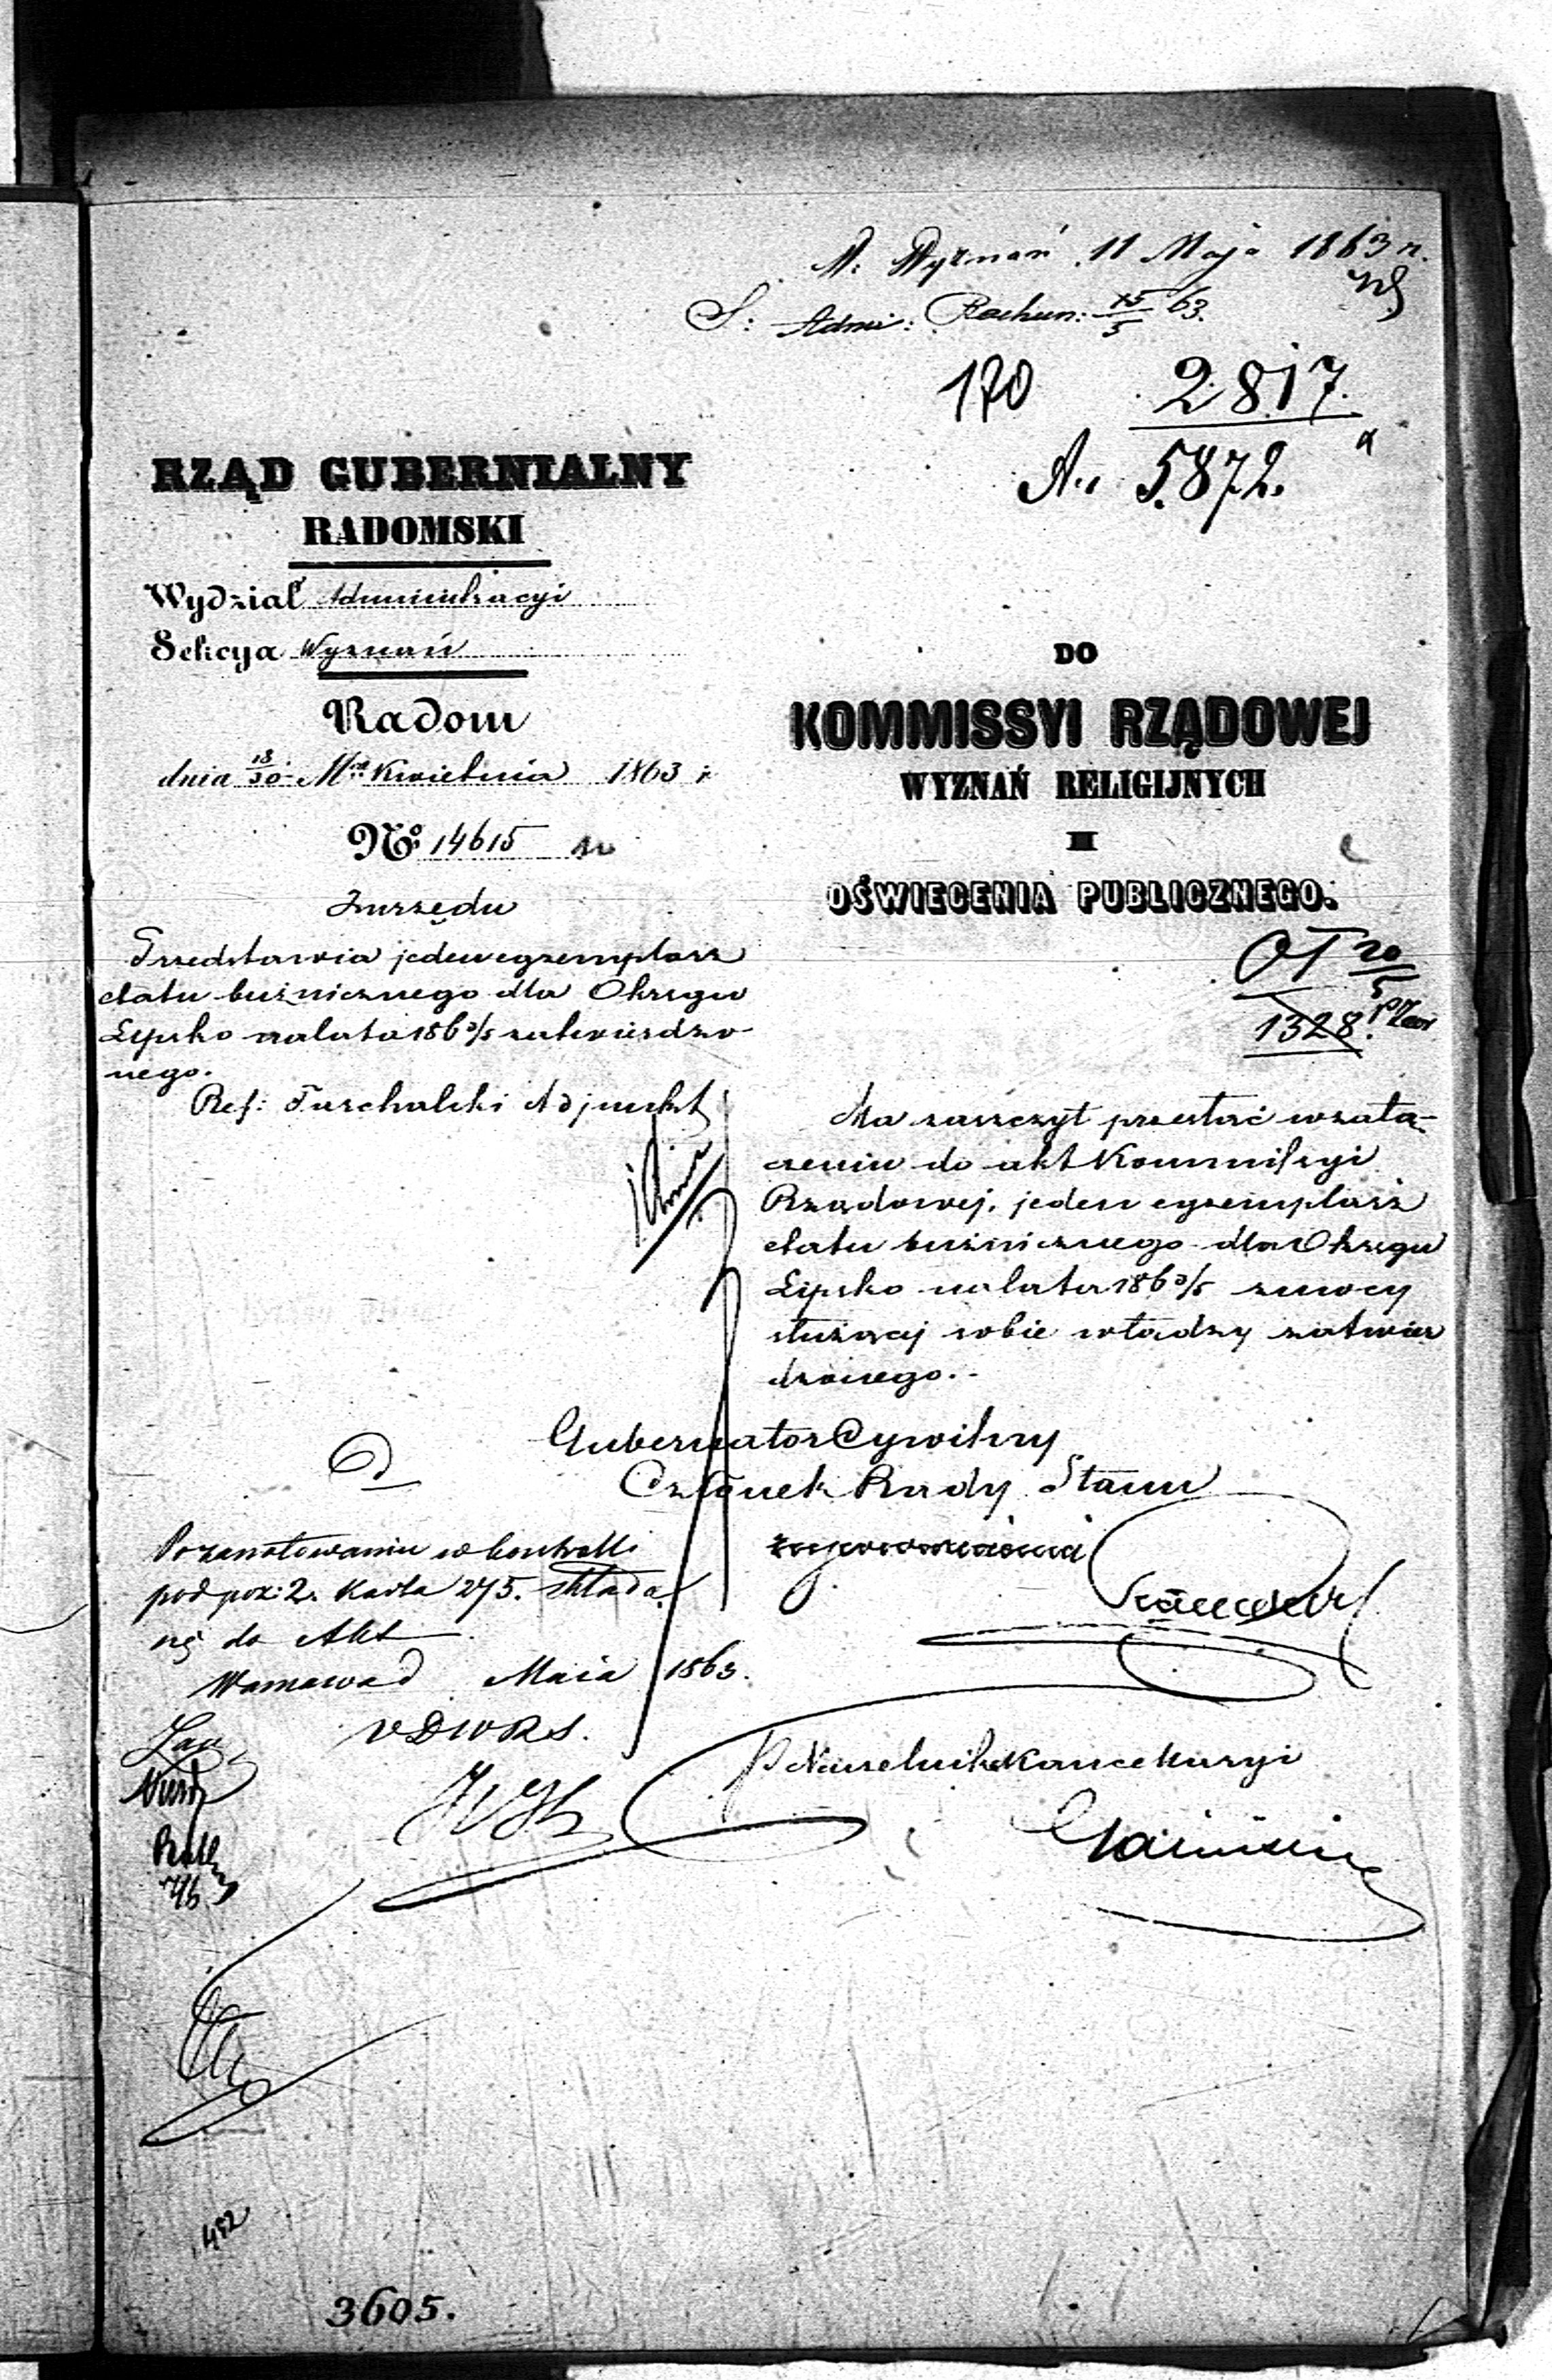 W. Wyznań 11 Maja 1863 r.
S: Admi: Rachun: 15/5 63.
170 2817.
A.. 5.872.
RZĄD GUBERNIALNY
RADOMSKI
Wydział Administracyi
Sekcya Wyznań
Radom
dnia 18/30 Mca Kwietnia 1863 r
No: 14615
Zurzędu
Przedstawia jeden egzemplarz
etatu bużnicznego dla Okręgu
Lipsko na lata 1863/5 zatwierdzo-
nego.
Ref: Puschalski Adjunkt
DO
KOMMISSYI RZĄDOWEJ
WYZNAŃ RELIGIJNYCH
I
OŚWIECENIA PUBLICZNEGO.
OT 20/5
1328.
Ma zaszczyt przesłać w załą-
czeniu do akt Kommissyi
Rządowej, jeden egzemplarz
etatu bużnicznego dla Okręgu
Lipsko na lata 1863/5 z mocy
służącej sobie władzy zatwier
dzonego.-
Gubernator Cywilny
Członek Rady Stanu
Po zanotowaniu w kontrolli
pod poz: 2. Karta 275. składa
się do Akt
Warszawa d Maja 1863.
VDWRS.
p Naczelnik Kancellaryi
492
3605.